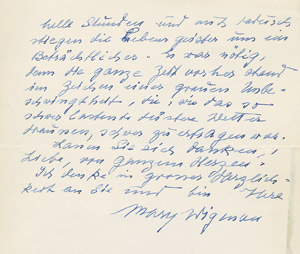 helle Stunden und auch
stiegen die Lebensgeister um ein
Beträchtliches. 's war nötig,
denn die ganze Zeit vorher stand
im Zeichen einer grauen Unbe-
schwingtheit, die, wie das so
schwer lastende düstere Wetter
draussen, schwer zu ertragen war.
Lassen Sie sich danken,
Liebe, von ganzem Herzen.
Ich denke in grosser Herzlich-
keit an Sie und bin Ihre
Mary Wigman